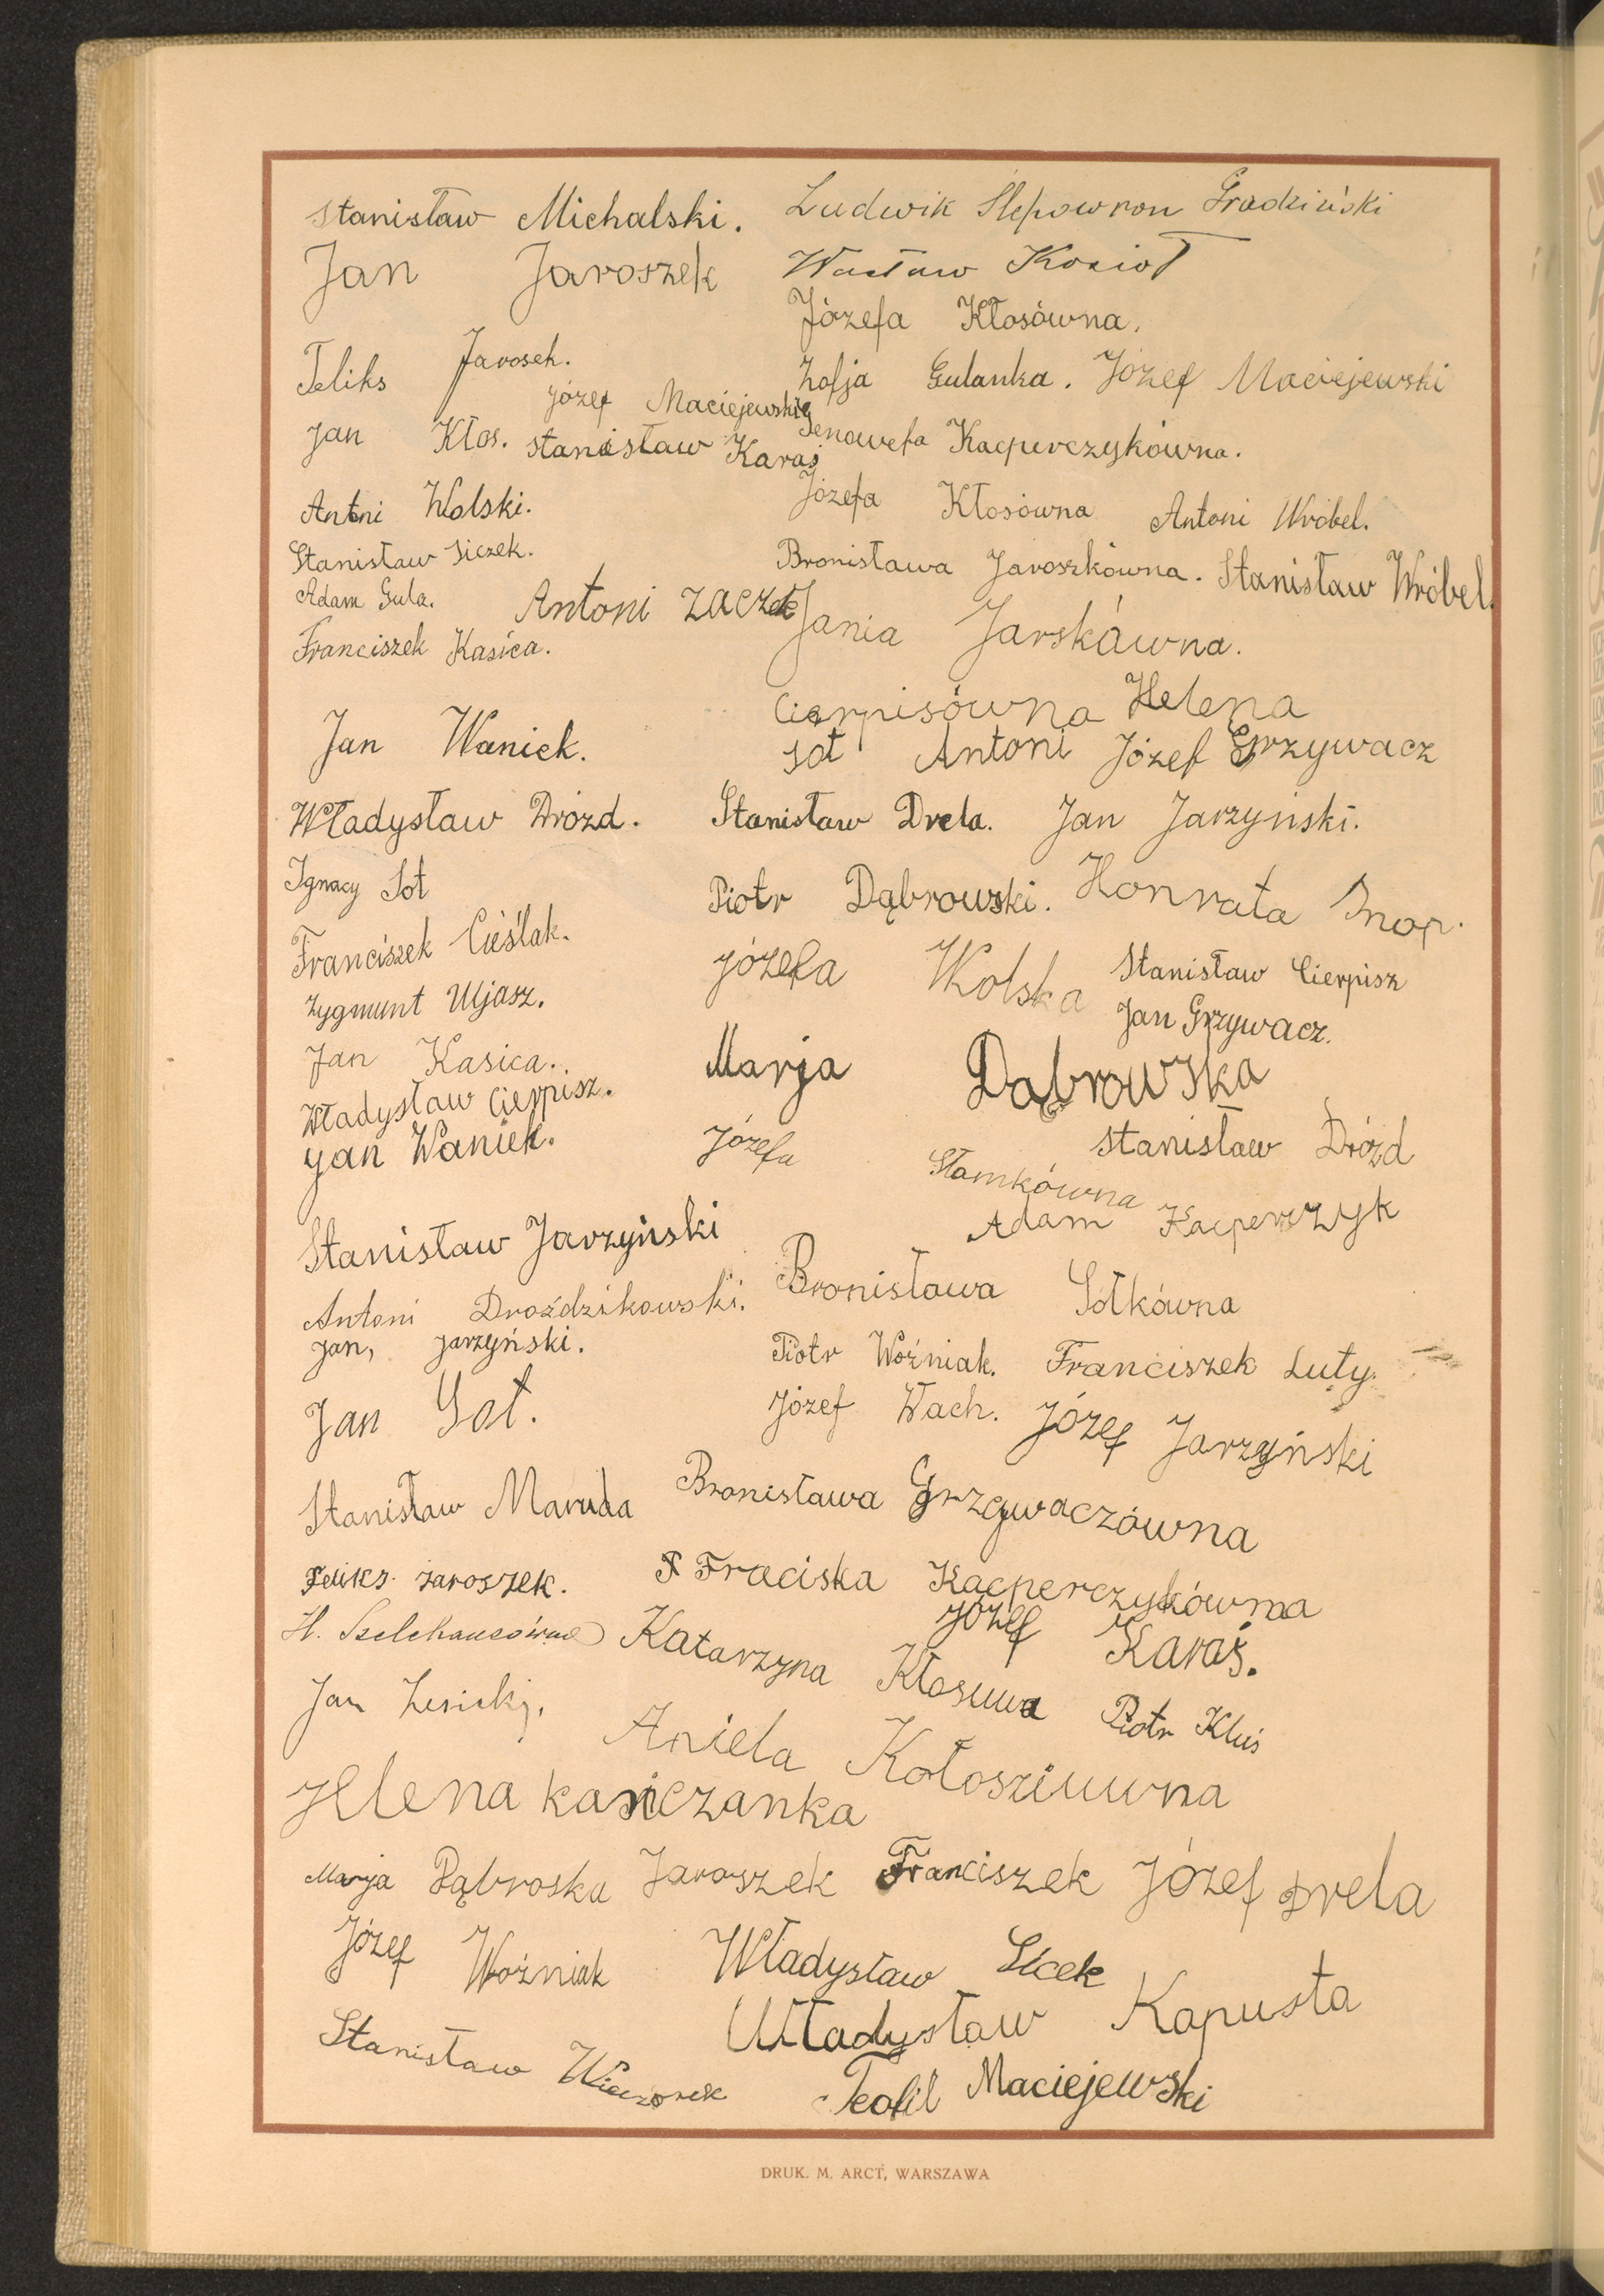 Stanisław Michalski. Ludwik Ślepowron Gradziński
Jan Jaroszek Wacław Kozioł
Józefa Kłosówna.
Feliks Jarosek. Zofja Gulanka. Józef Maciejewski
Józef Maciejewski
Jan Kłos. Stanisław Karaś Genowefa Kacperczykówna.
Antoni Wolski. Józefa Kłosówna Antoni Wróbel.
Stanisław Siczek. Bronisława Jaroszkówna. Stanisław Wróbel.
Adam Gula. Antoni Zaczek Jania Jarskówna.
Franciszek Kasica.
Cierpisówna Helena
Jan Waniek. Sot Antoni Józef Grzywacz
Władysław Drózd. Stanisław Drela. Jan Jarzyński.
Ignacy Sot Piotr Dąbrowski. Honrata Snop.
Franciszek Cieślak. Józefa Wolska Stanisław Cierpisz
Zygmunt Ujasz. Jan Grzywacz.
Jan Kasica. Marja Dąbrowska
Władysław Cierpisz.
Jan Waniek. Józefa Słomkówna Stanisław Drózd
Stanisław Jarzyński Adam Kacperczyk
Antoni Droździkowski. Bronisława Sołkówna
Jan, Jarzyński. Piotr Woźniak. Franciszek Luty.
Jan Sot. Józef Wach. Józef Jarzyński
Stanisław Maruda Bronisława Grzywaczówna
Feliks Jaroszek. F Fraciska Kacperczykówna
H. Szelchauzówna Katarzyna Kłosuwa Józef Karaś.
Jan Lesicki. Piotr Kluś
Aniela Kołosziuwna
Hlena kasiczanka
Marja Dąbroska Jaroszek Franciszek Józef Drela
Józef Woźniak Władysław Sicek
Stanisław Wieczorek Władysław Kapusta
Teofil Maciejewski
DRUK. M. ARCT, WARSZAWA